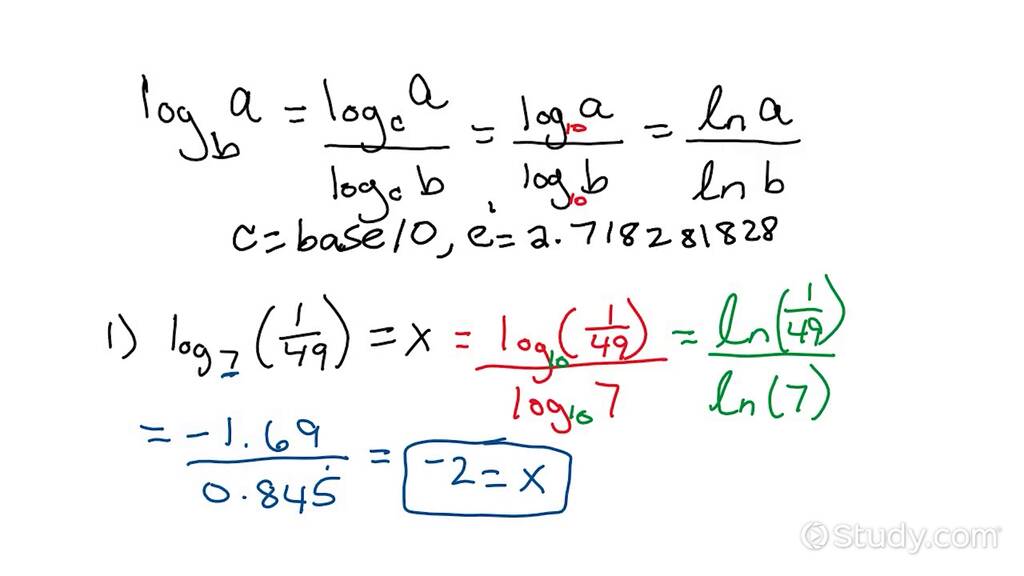 log_b a = log_c a / log_c b = log_10 a / log_10 b = ln a / ln b
c = base 10, e = 2.718281828
1) log_7 (1/49) = x = log_10 (1/49) / log_10 7 = ln(1/49) / ln(7)
= -1.69 / 0.845 = -2 = x
Study.com